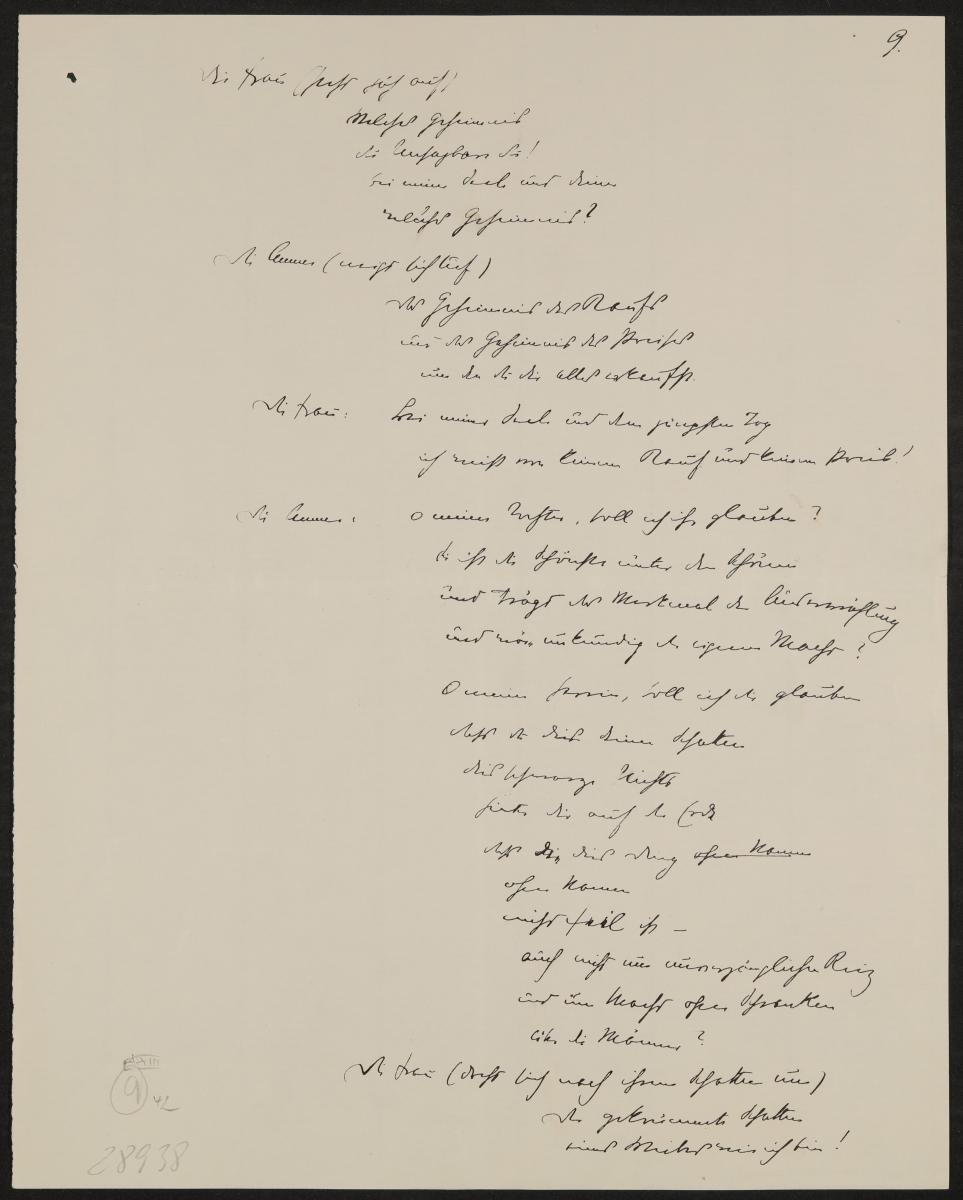 9.
Die Frau (steht jäh auf)
Welches Geheimnis
du Unsagbare du!
bei meiner Seele und deiner
welches Geheimnis?
Die Amme (neigt sich tief)
das Geheimnis des Kaufs
und das Geheimnis des Preises
um den du dir alles erkaufst.
Die Frau: Bei meiner Seele und dem jüngsten Tag
ich weiß von keinem Kauf und keinem Preis!
Die Amme: O meine Tochter, soll ich es glauben?
du ist die Schönste unter den Schönen
und trägt das Merkmal der
und wäre unkundig der eigenen Macht?
O meine Herrin, soll ich dir glauben
dass du dies deinen Schatten
dies schwarze Nichts
hinter dir auf der Erde
dass dir dies Ding ohne Namen
ohne Namen
nicht feil ist –
auch nicht um unvergänglichen Reiz
und um Macht ohne Schranken
über die Männer?
Die Frau (dreht sich nach ihrem Schatten um)
Der gekrümmte Schatten
eines Weibes wie ich bin!
9
42
28938